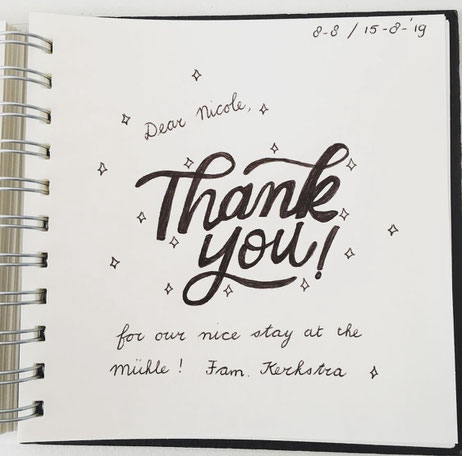 8-8 / 15-8-'19
Dear Nicole,
Thank
you!
for our nice stay at the
Mühle! Fam. Kerkstra